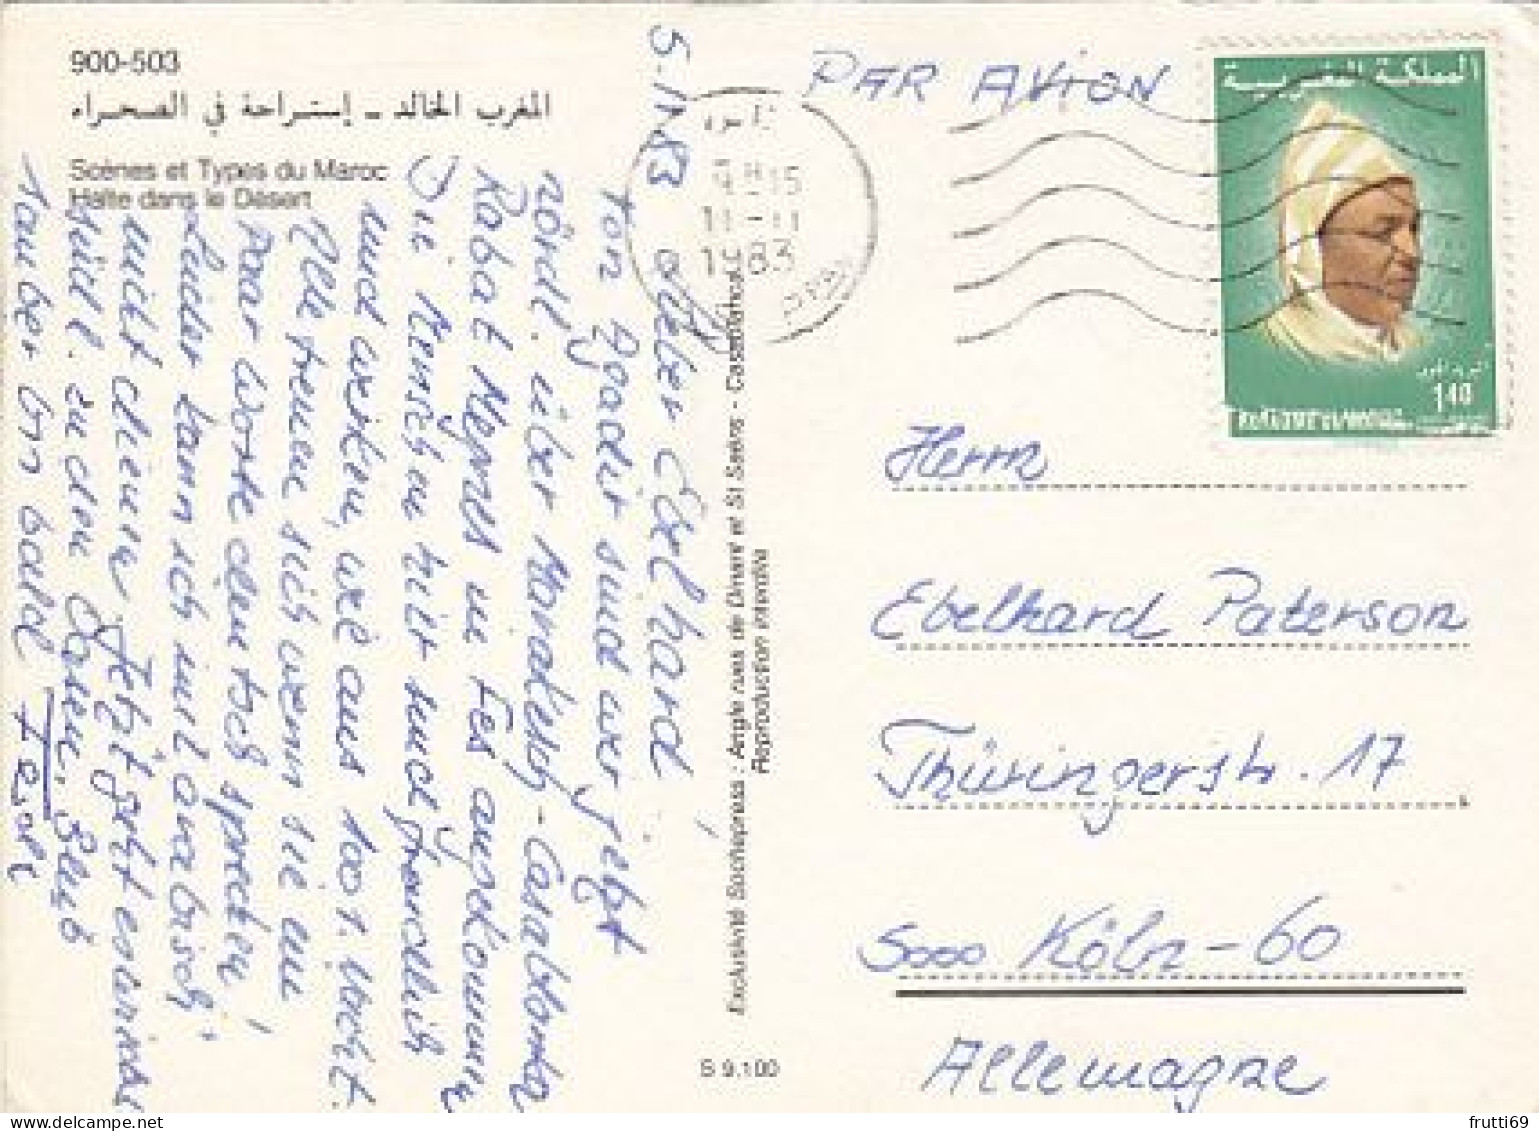 900-503
المغرب الخالد - إستراحة في الصحراء
Scènes et Types du Maroc
Halte dans le Désert
5.11.83
Lieber Ebelhard,
von Agadir sind wir jetzt
nördl. über Marakesch-Casablanka
Rabat Meknes in Fes angekommen
Die Menschen hier sind freundlich
und wirken, wie aus 1001 Nacht.
Alle freuen sich wenn sie ein
paar Worte deutsch sprechen,
leider kann ich in arabisch
nicht dienen. Jetzt geht es wieder
südl. zu den
bis bald
Exclusivité Sochepress : Angle rues de Dinant et St Saëns - Casablanca
Reproduction interdite
S 9.100
PAR AVION
15
11 - 11
1983
المملكة المغربية
البريد الجوي
1.40
ROYAUME DU MAROC
Herrn
Ebelhard Paterson
Thüringerstr. 17
5000 Köln-60
Allemagne
frutti69